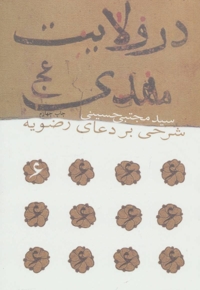 در ولایت
مهدی عج
سید مجتبی حسینی
شرحی بر دعای رضویه